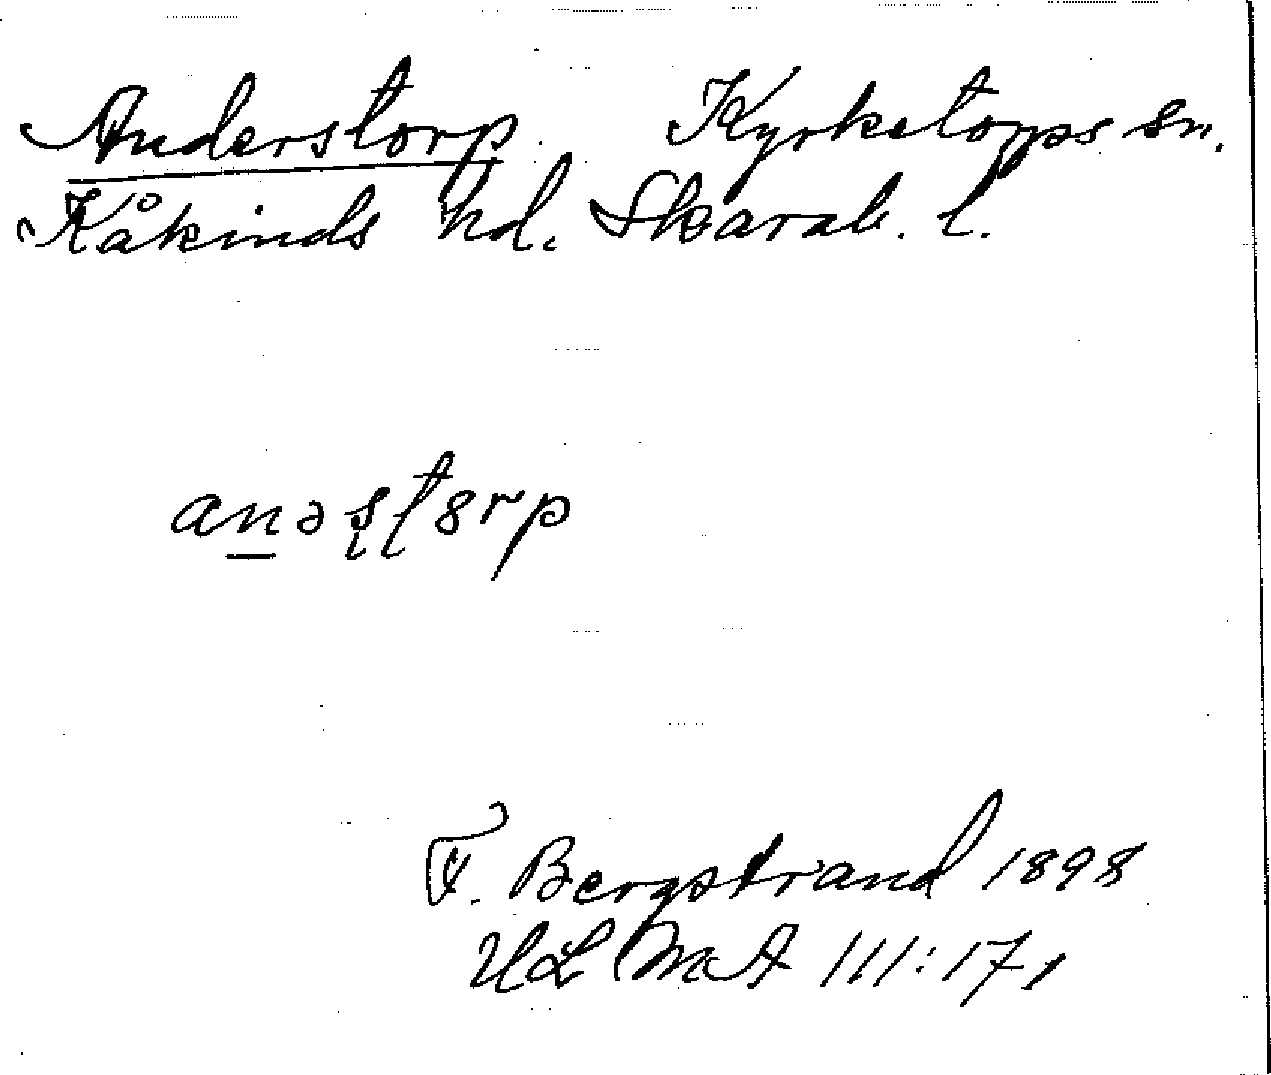 Anderstorp. Kyrketorps sn.
Kåkinds hd. Skarab. l.
anəʂʈ8rp
F. Bergstrand 1898
ULMA 111:17,